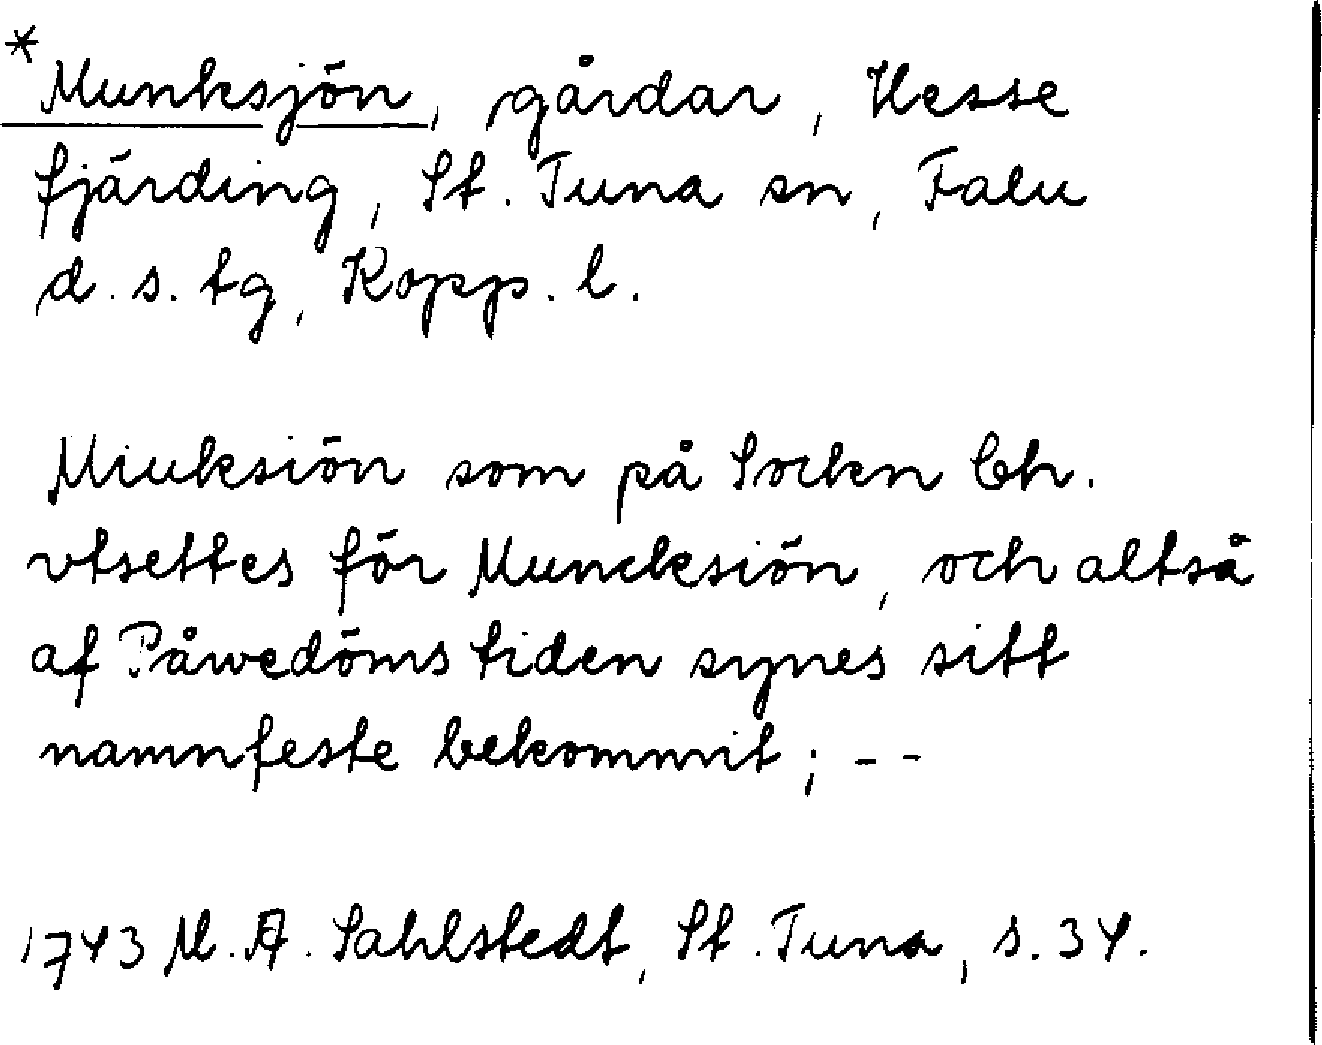 *Munksjön, gårdar, Hesse
fjärding, St. Tuna sn, Falu
d.s. tg, Kopp. l.
Miuksiön som på Socken Ch.
vtsettes för Muncksiön, och altså
af Påwedöms tiden synes sitt
namnfeste bekommit; - -
1743 M.A. Sahlstedt, St. Tuna, s. 34.